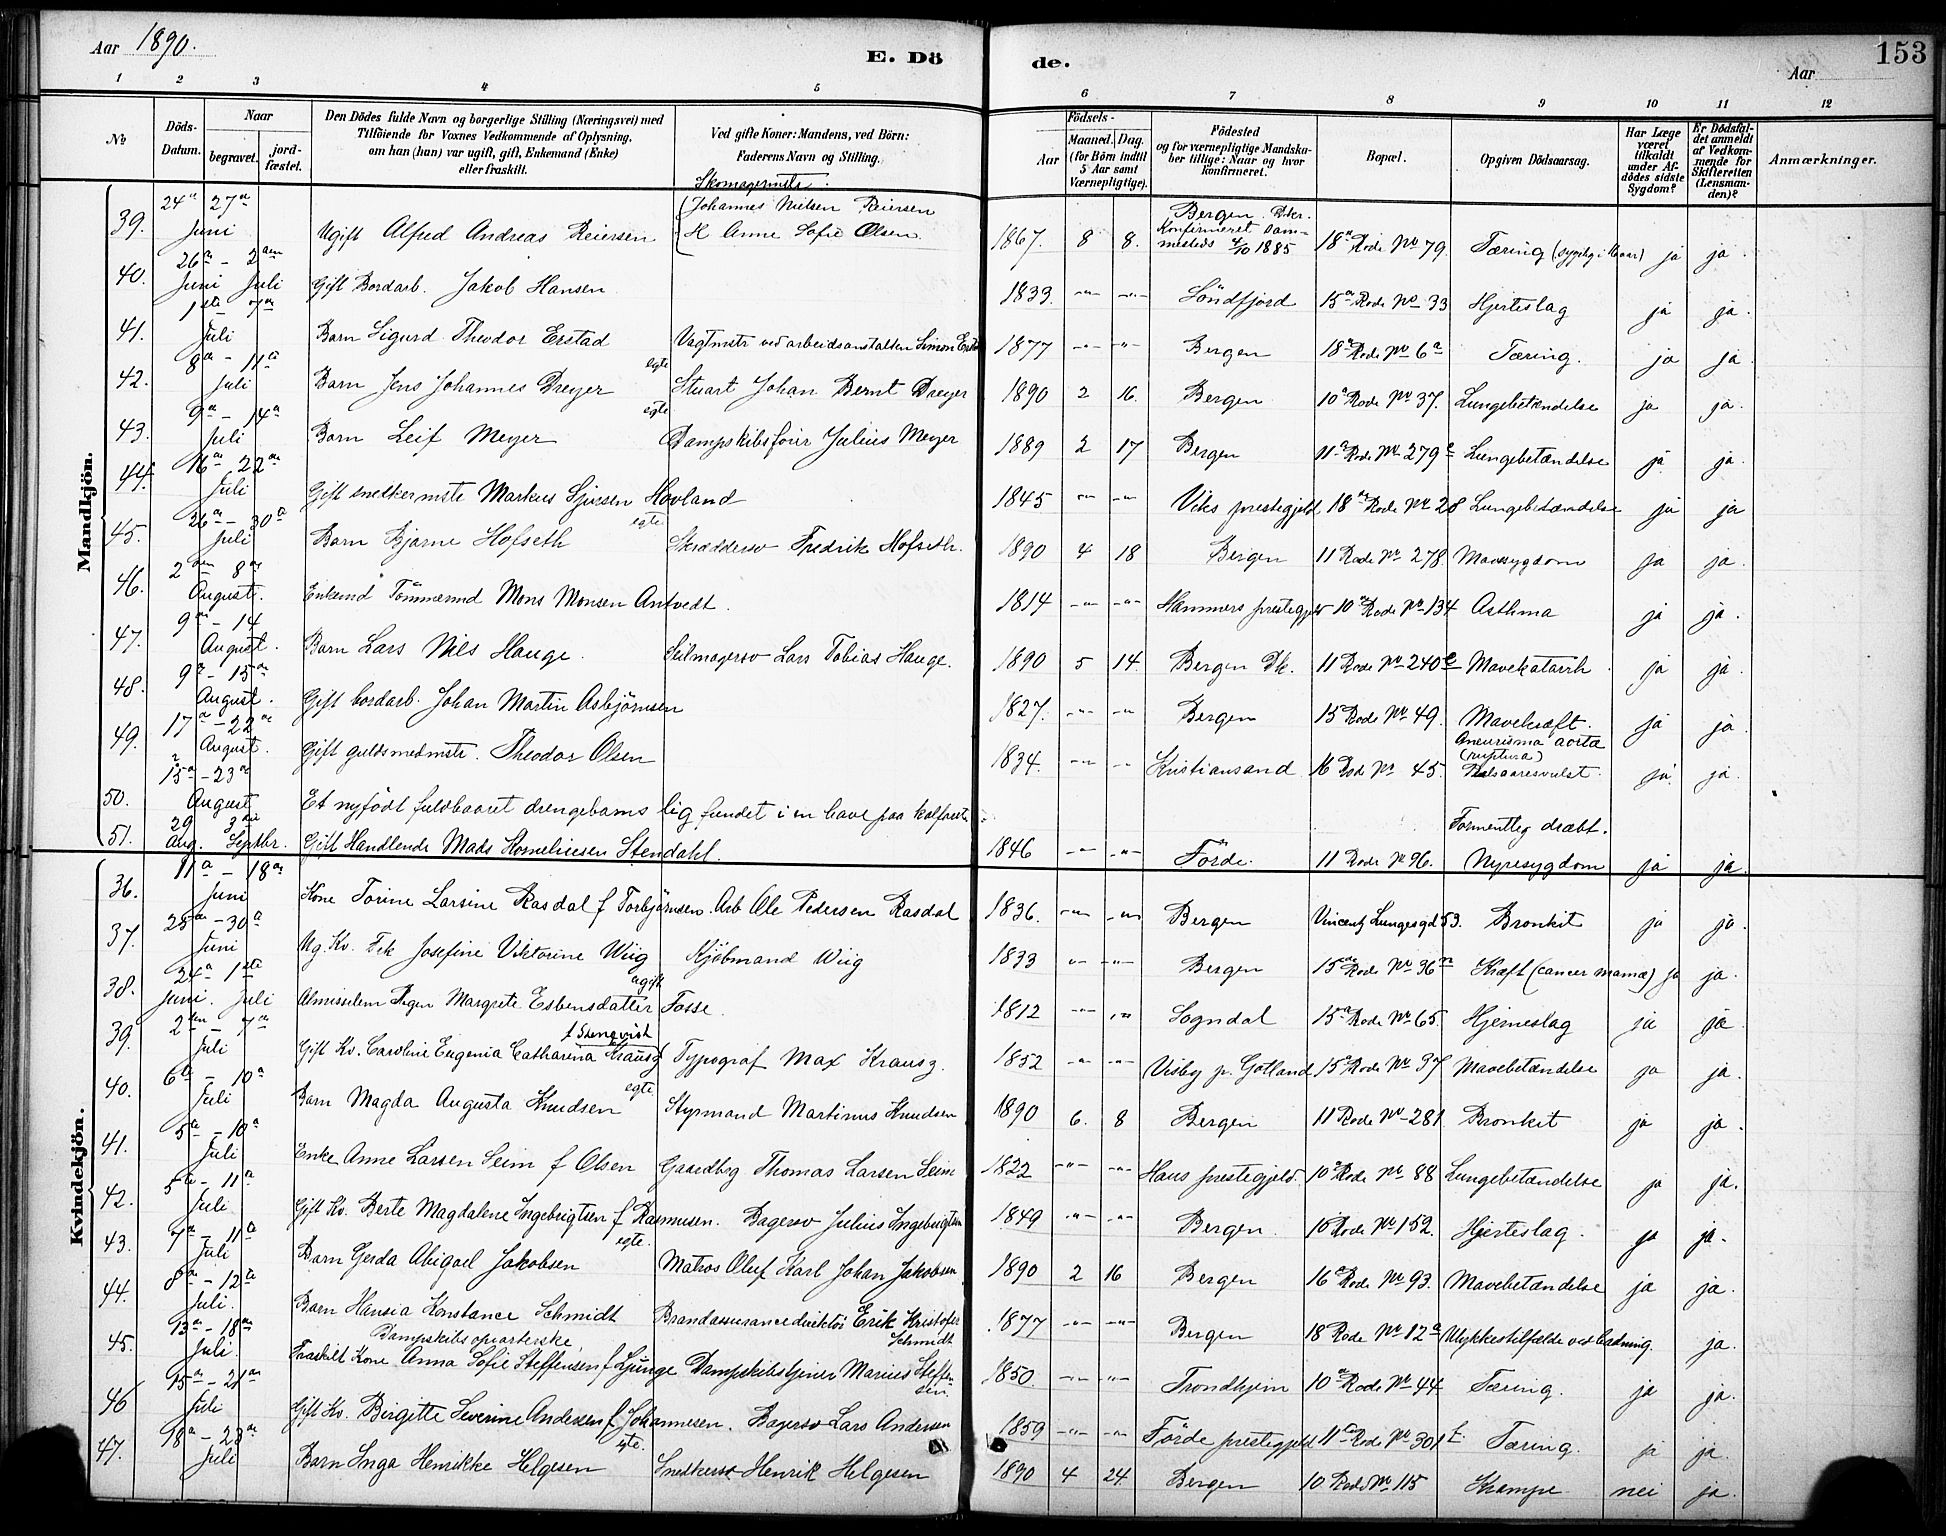 Aar 1890.
E. Dö de.
153
Aar
1 2 3 4 5 6 7 8 9 10 11 12
No
Döds-Datum.
Naar
begravet. jord-fæstet.
Den Dödes fulde Navn og borgerlige Stilling (Næringsvei) med
Tilföiende for Voxnes Vedkommende af Oplysning,
om han (hun) var ugift, gift, Enkemand (Enke)
eller fraskilt.
Ved gifte Koner: Mandens, ved Börn:
Faderens Navn og Stilling.
Födsels-
Aar
Maaned. Dag.
(for Börn indtil
5 Aar samt
Værnepligtige).
Födested
og for værnepligtige Mandska-
ber tillige: Naar og hvor
konfirmeret.
Bopæl.
Opgiven Dödsaarsag.
Har Læge
været
tilkaldt
under Af-
dödes sidste
Sygdom?
Er Dödsfal-
det anmeldt
af Vedkom-
mende for
Skifteretten
(Lensman-
den)?
Anmærkninger.
Mandkjön.
39. 24de 27de Juni Ugift Alfred Andreas Reiersen Skomagermstr. Johannes Nielsen Reiersen H Anne Sofie Olsen. 1867. 8 8. Bergen. Dkr. Konfirmeret sam-mesteds 4/10 1885 18de Rode No 79. Tæring ja ja.
40. 26de – 2den Juni Juli Gift Bordarb. Jakob Hansen 1839. -"- -"- Söndfjord 15de Rode No 33 Hjerteslag ja ja.
41. 1ste 7de Juli Barn Sigurd Theodor Erstad Vagtmstr ved arbeidsanstalten Simon Erstad 1877 -"- -"- Bergen 18de Rode No 6a Tæring. ja ja.
42. 8de – 11de Juli Barn Jens Johannes Dreyer egte Stuart Johan Bernt Dreyer 1890 2 16. Bergen 10de Rode No 37. Lungebetændelse ja ja.
43. 9de – 14de Juli Barn Leif Meyer egte Dampskibsförer Julius Meyer 1889 2 17 Bergen 11te Rode No 279 Lungebetændelse ja ja.
44. 16de 22de Juli Gift snedkermstr Markus Sjursen Hovland 1845 -"- -"- Viks prestegjeld 18de Rode No 28 Lungebetændelse ja ja
45. 26de – 30de Juli Barn Bjarne Hofseth egte Skræddersv Fredrik Hofseth. 1890 4 18 Bergen 11 Rode No 278. Mavesygdom ja ja.
46. 2den 8de August. Enkemd Tömmermd Mons Monsen Antvedt. 1814 -"- -"- Hammers prestegjeld 10de Rode No 134 Asthma ja ja.
47. 9de – 14 August. Barn Lars Nils Hauge. Seilmagersv Lars Tobias Hauge. 1890 5 14. Bergen Dk. 11 Rode No 240e Mavekatarrh ja ja.
48. 9de – 15de August. Gift bordarb. Johan Martin Asbjörnsen 1827. -"- -"- Bergen 15 Rode No 49. Mavekræft. ja ja.
49. 17de – 22de August. Gift guldsmedmstr. Theodor Olsen 1834. -"- -"- Kristiansand 16 Rode No 45. Aneurisma aortæ (ruptura) Pulsaaresvulst. ja. ja.
50. 15de – 23de August Et nyfödt fuldbaaret drengebarns lig fundet i en have paa Kalfaret. Formentlig dræbt.
51. 29 3die Aug. Septbr. Gift Handlende Mads Kornelinsen Stendahl. 1846 -"- -"- Förde. 11 Rode No 96. Nyresygdom ja ja.
Kvindekjön.
36. 11te – 18de Juni Kone Torine Larsine Rasdal f Torbjörnsen. Arb Ole Pedersen Rasdal 1836. -"- -"- Bergen Vincentz Lungesgd 53. Bronkit ja ja.
37. 25de – 30de Juni Ug. Kv. Frk Josefine Viktorine Wiig Kjöbmand Wiig 1833 -"- -"- Bergen 15de Rode No 36 Kræft (cancer mamæ) ja ja.
38. 24de 1ste Juni. Juli Almisselem Pigen Margrete Esbensdatter Fosse. ugift 1812 -"- -"- Sogndal 15de Rode No 65. Hjerneslag ja ja
39. 2den – 7de Juli Gift Kv. Caroline Eugenia Catharina Krausz f Stenqvist Typograf Max Krausz. 1852 -"- -"- Visby p. Gotland 15de Rode No 37 Mavebetændelse ja ja.
40. 6te – 10de Juli Barn Magda Augusta Knudsen egte Styrmand Martinus Knudsen 1890 6. 8 Bergen 11 Rode No 281 Bronkit ja ja.
41. 5te – 10de Juli Enke Anne Larsen Seim f Olsen Gaardbrg Thomas Larsen Seim 1822 -"- -"- Haus prestegjeld. 10de Rode No 88 Lungebetændelse ja ja.
42. 5te – 11te Juli Gift Kv. Berte Magdalene Ingebrigtsen f Rasmusen. Bagersv Julius Ingebrigtsen 1849 -"- -"- Bergen 15 Rode No 152. Hjerteslag. ja ja.
43. 7de – 11te Juli Barn Gerda Abigael Jakobsen egte. Matros Oluf Karl Johan Jakobsen 1890 2 16 Bergen 16de Rode No 93. Mavebetændelse ja ja.
44. 8de – 12te Juli. Barn Hansia Konstance Schmidt Brandassurancedirektör Erik Kristofer Schmidt 1877 -"- -"- Bergen 18 Rode No 12a Ulykkestilfælde ved badning. ja.
45. 13de – 18de Juli. Dampskibsopvarterske Fraskilt Kone Anna Sofie Steffensen f Ljunge Dampskibstjener Marius Steffen-sen. 1850. -"- -"- Trondhjem 10de Rode No 44 Tæring. ja ja.
46 15de – 21de Juli Gift Kv. Birgitte Severine Andersen f Johannesen. Bagersv Lars Andersen 1859 -"- -"- Förde prestegjeld 11te Rode No 301 Tæring. ja ja.
47. 18de – 23de Juli Barn Inga Henrikke Helgesen egte. Snedkersv Henrik Helgesen 1890 4 24. Bergen 10 Rode No 115 Krampe nei ja.